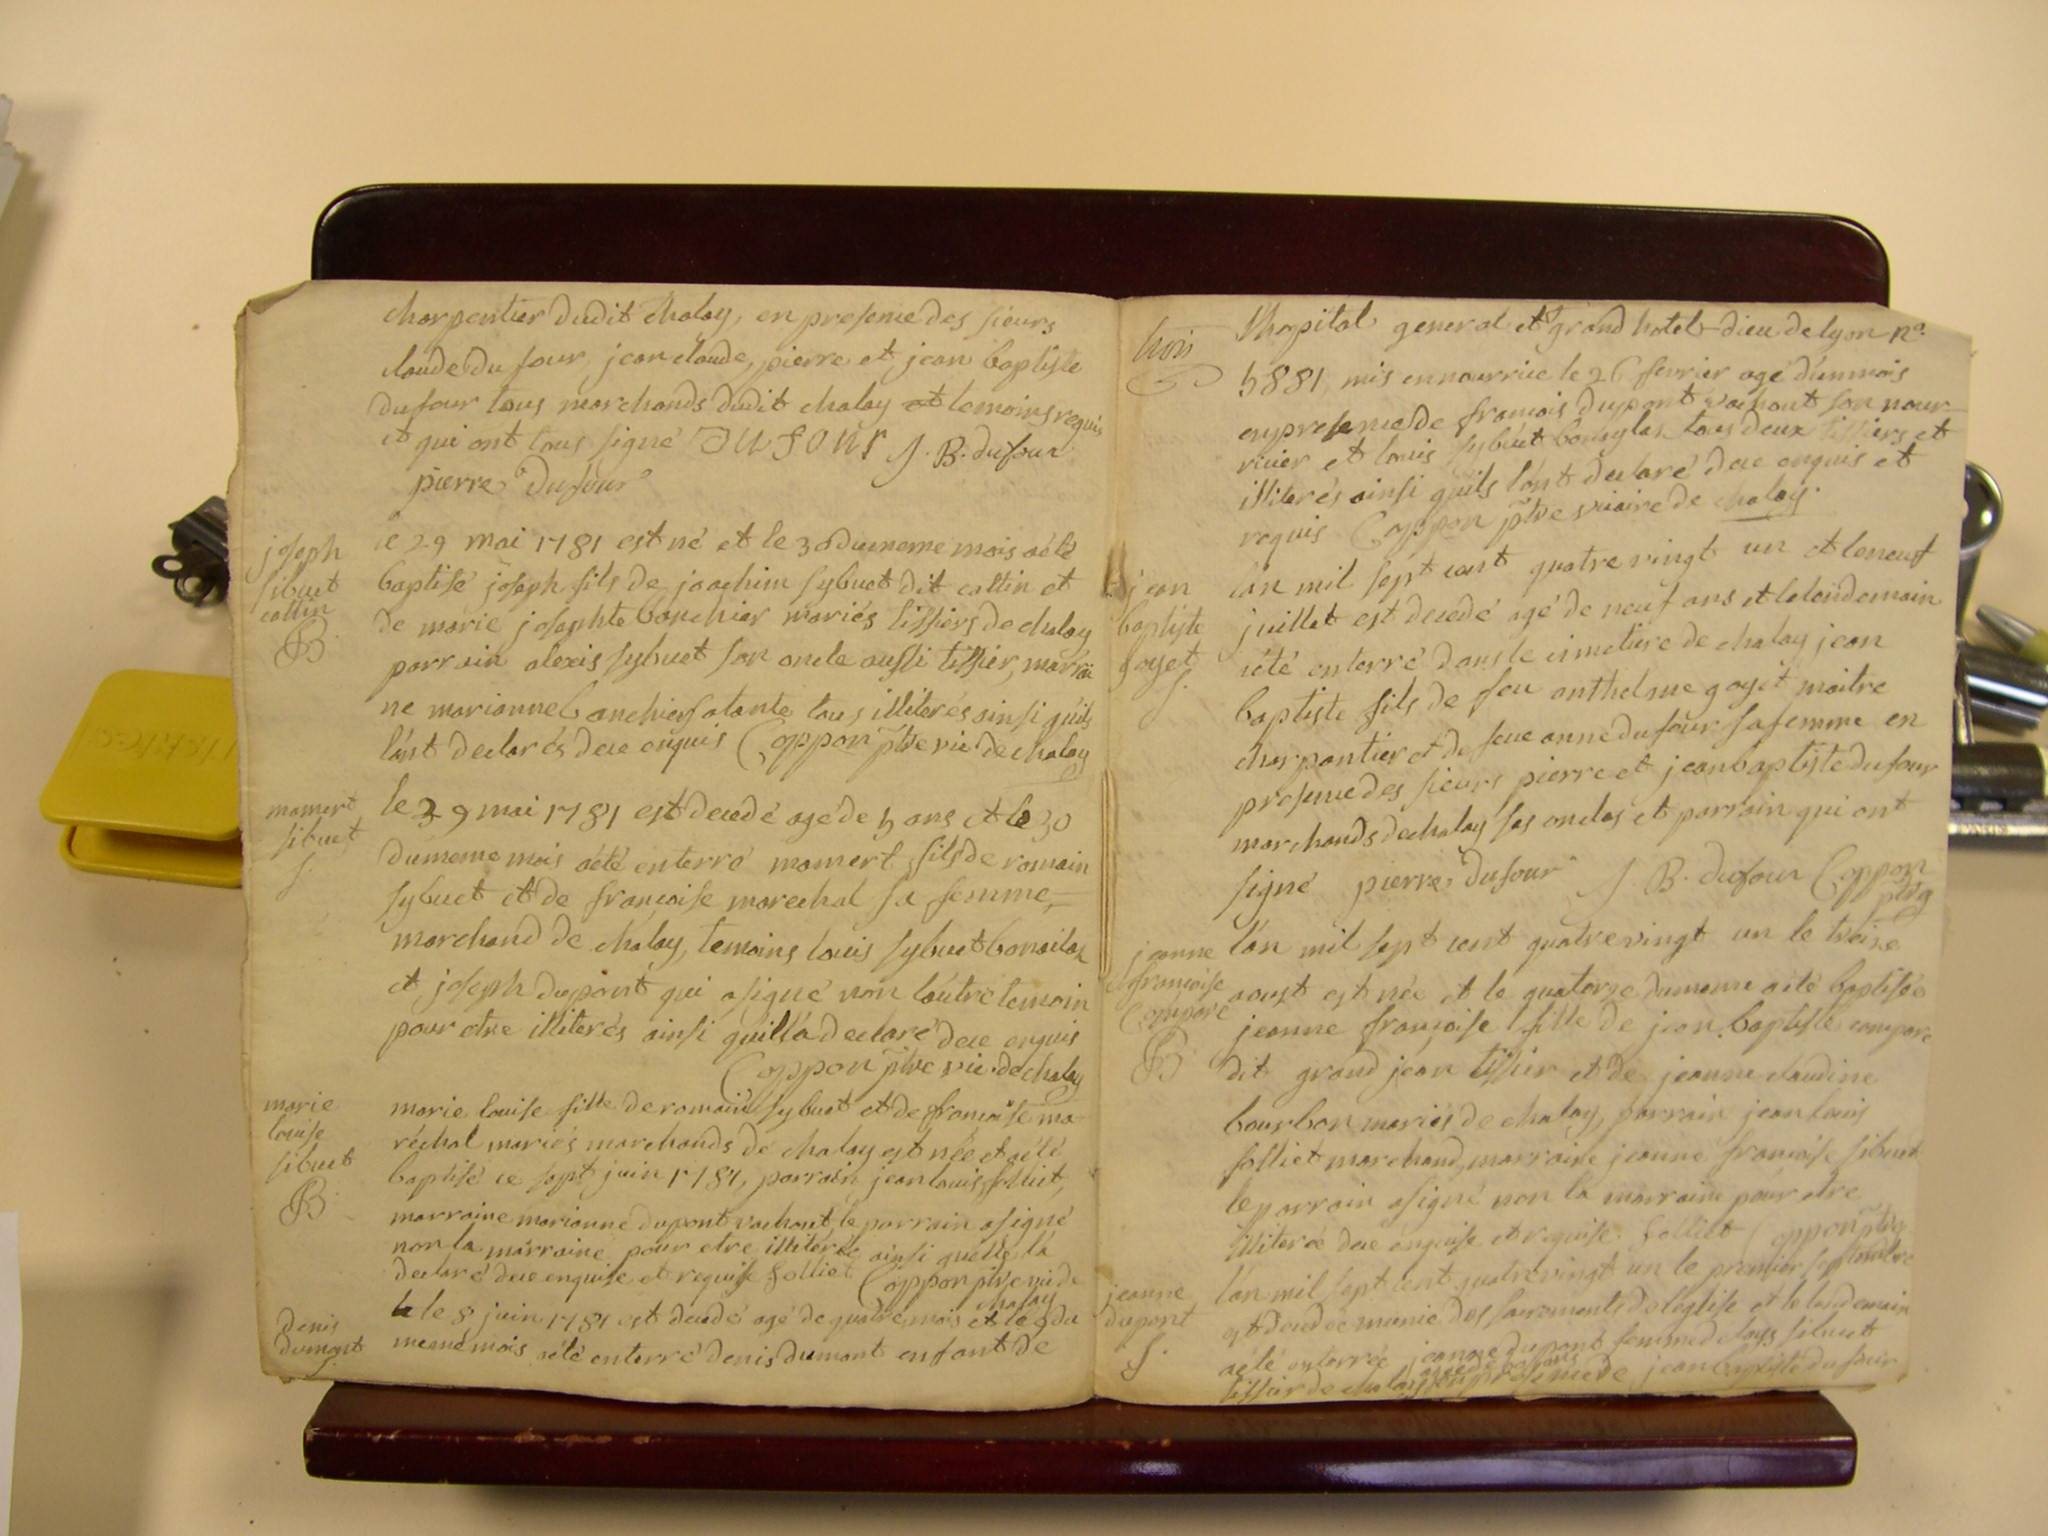 charpentier dudit chaley, en presence des sieurs
claude du four, jean claude, pierre et jean baptiste
dufour tous marchands dudit chaley et temoins requis
et qui ont tous signé dufour J. B. dufour
pierre dufour
joseph
sibuet
cattin
B
le 29 mai 1781 est né et le 30 du meme mois a été
baptisé joseph fils de joachim sybuet dit cattin et
de marie josephte banchier mariés tissiers de chaley
parrain alexis sybuet son oncle aussi tissier, marrai
ne marianne banchier sa tante tous illiterés ainsi qu'ils
l'ont declarés de ce enquis Coppon ptre vic de chaley
mamert
sibuet
S.
le 29 mai 1781 est decedé agé de 5 ans et le 30
du meme mois a été enterré mamert fils de romain
sybuet et de françoise marechal sa femme,
marchand de chaley, temoins louis sybuet
et joseph dupont qui a signé non l'autre temoin
pour etre illiterés ainsi qu'il l'a declaré de ce enquis
Coppon ptre vic. de chaley
marie
louise
sibuet
B
marie louise fille de romain sybuet et de françoise ma
réchal mariés marchands de chaley est née et a été
baptisé ce sept juin 1781, parrain jean louis folliet,
marraine marianne dupont vachout, le parrain a signé
non la marraine pour etre illiterée ainsi quelle l'a
declaré de ce enquise et requise folliet Coppon ptre vic de
chaley
denis
dumont
S.
le 8 juin 1781 est decedé agé de quatre mois et le 9 du
meme mois a été enterré denis dumont enfant de
trois
l'hopital general et grand hotel-dieu de lyon n°.
5881 mis en nourrice le 26 fevrier agé d'un mois
en presence de francois dupont vachout son nour-
ricier et louis sybuet tous deux tissiers et
illiterés ainsi qu'ils l'ont declaré de ce enquis et
requis Coppon ptre vicaire de chaley.
jean
baptiste
goyet
S.
l'an mil sept cent quatre vingt un et le neuf
juillet est decedé agé de neuf ans et le lendemain
a été enterré dans le cimetiere de chaley jean
baptiste fils de feu anthelme goyet maitre
charpantier et de feue anne dufour sa femme en
presence des sieurs pierre et jean baptiste dufour
marchands de chaley ses oncles et parrain qui ont
signé pierre dufour J. B. dufour Coppon
ptre
jeanne
françoise
Comparé
B
l'an mil sept cent quatre vingt un le treize
aoust est née et le quatorze du meme a été baptisée
jeanne françoise fille de jean baptiste comparé
dit grand jean tissier et de jeanne claudine
bourbon mariés de chaley, parrain jean louis
folliet marchand, marraine jeanne françoise sibuet
le parrain a signé non la marraine pour etre
illiterée de ce enquise et requise folliet Coppon ptre
jeanne
dupont
S.
l'an mil sept cent quatre vingt un le premier septembre
est decedée munie des sacrements de l'eglise et le lendemain
a été enterrée jeanne dupont femme d'eloys sibuet
tissier de chaley en presence de jean baptiste dufour